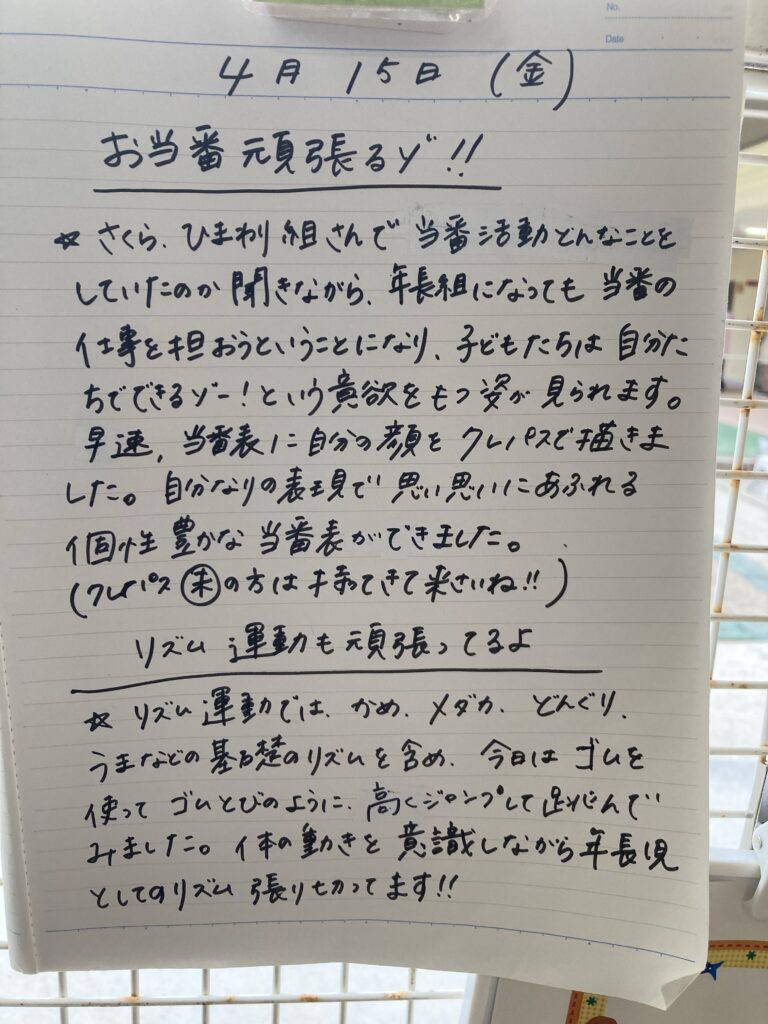 No.
Date
4月 15日 (金)
お当番 頑張るゾ!!
☆ さくら、ひまわり組さんで 当番活動どんなことを
していたのか 聞きながら、年長組になっても 当番の
仕事を担おうということになり、子どもたちは 自分た
ちでできるゾー!という意欲をもつ姿が 見られます。
早速, 当番表に自分の顔を クレパスで描きま
した。自分なりの表現で 思い思いにあふれる
個性 豊かな 当番表ができました。
(クレパス 未 の方は 持ってきて 来さいね!!)
リズム 運動も 頑張ってるよ
☆ リズム 運動では、かめ、メダカ、どんぐり、
うまなどの 基礎のリズムを含め、今日は ゴムを
使って ゴムとびのように、高くジャンプして 跳んで
みました。体の動きを 意識しながら 年長児
としてのリズム 張り切ってます!!